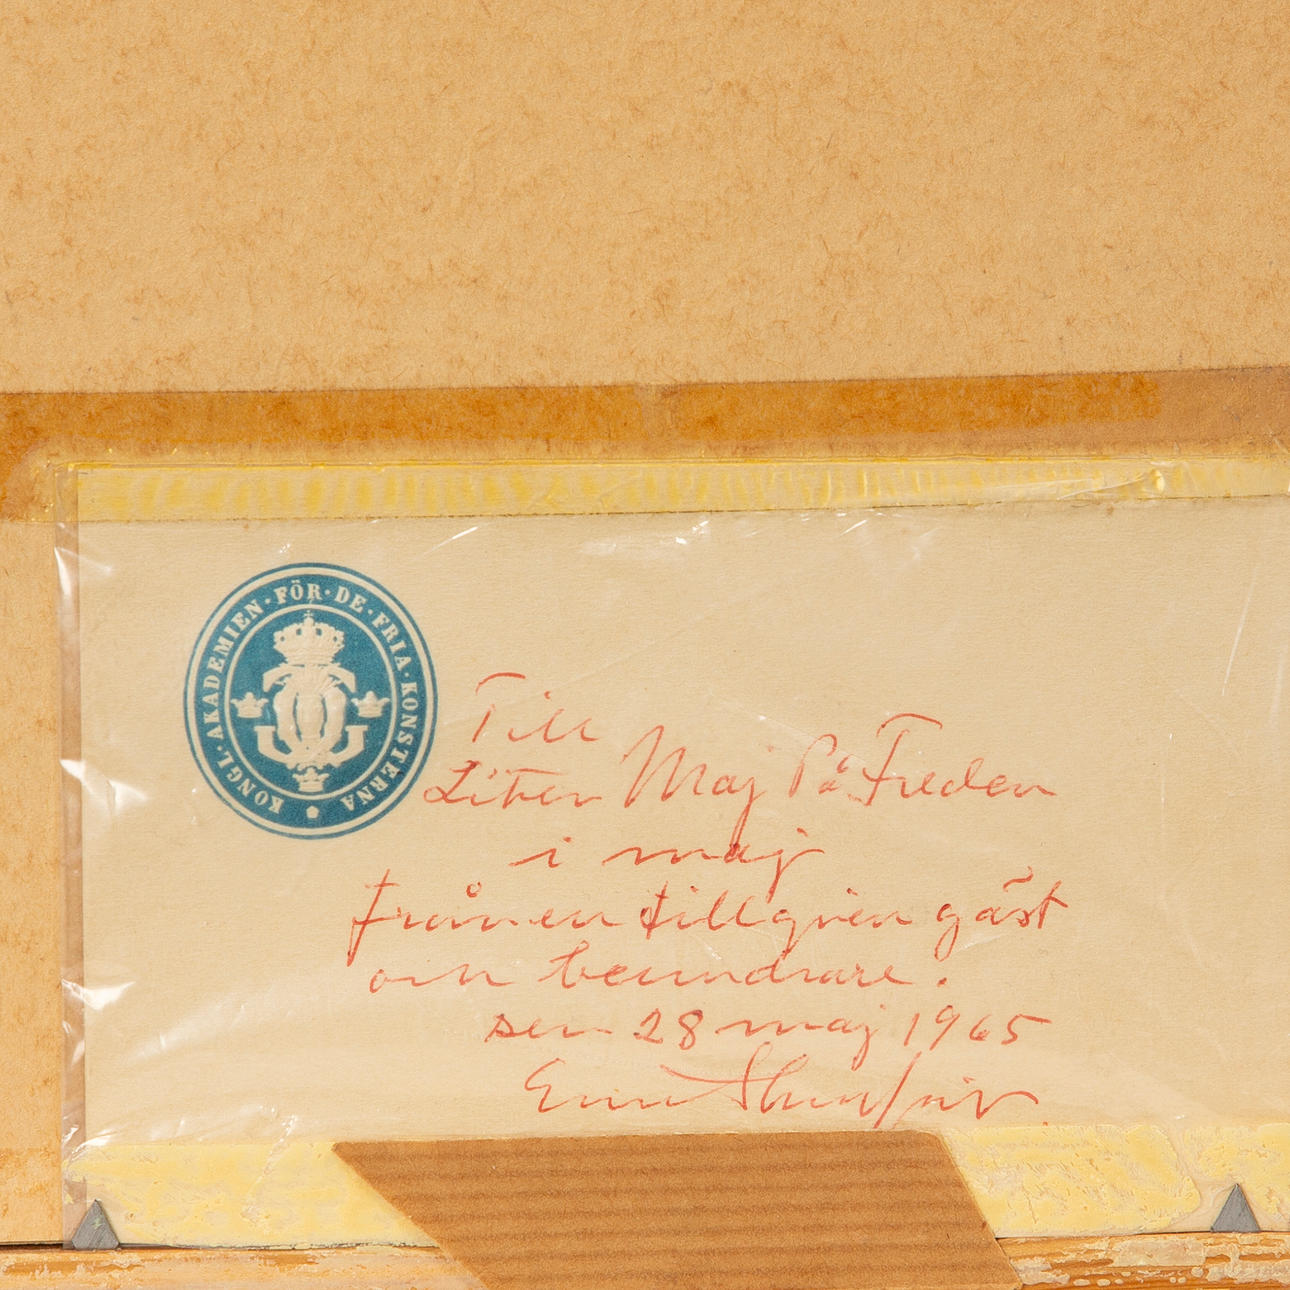 KONGL·AKADEMIEN·FÖR·DE·FRIA·KONSTERNA
Till
Liten Maj På Freden
i maj
från en tillgiven gäst
och beundrare.
den 28 maj 1965